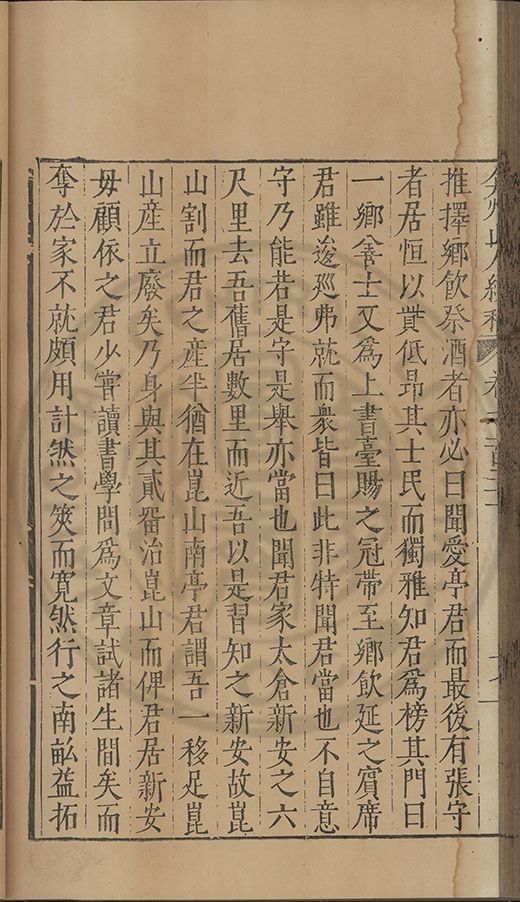 弇州山人續稿 卷一百二十 十七
推擇鄉飲祭酒者亦必曰聞愛亭君而最後有張守
者居恒以貲低昂其士民而獨雅知君爲榜其門曰
一鄉善士又爲上書臺賜之冠帶至鄉飲延之賓席
君雖逡巡弗就而衆皆曰此非特聞君當也不自意
守乃能若是守是舉亦當也聞君家太倉新安之六
尺里去吾舊居數里而近吾以是習知之新安故崑
山割而君之產半猶在崑山南亭君謂吾一移足崑
山產立廢矣乃身與其貳畱治崑山而俾君居新安
毋顧依之君少甞讀書學問爲文章試諸生間矣而
奪於家不就頗用計然之筴而寬然行之南畝益拓